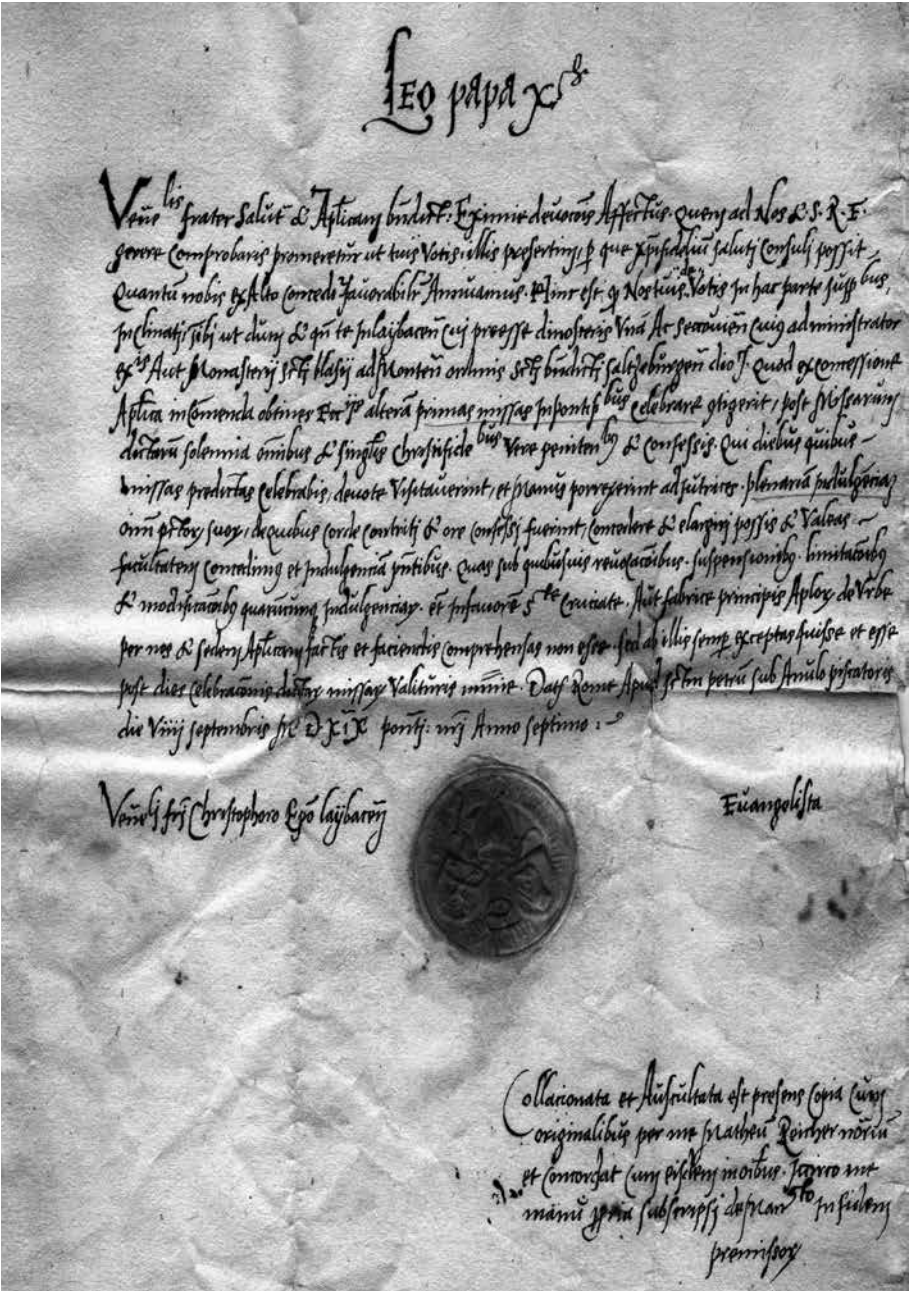 LEO papa Xs
Venelis frater Salut & Aplicam bndict: Eximie devocois Affectus. Quem ad Nos & S. R. E.
gerere Comprobaris promeretur ut tuis Votis illis presertim, per que xpifidelium saluti Consuli possit
Quantu nobis ex Alto Conceditur favorabilr Annuamus. Hinc est q Nos tuis de Votis in hac parte supp bus,
Inclinati, tibi ut dum & qn te in laybacen cui preesse dinosceris Una Ac Seccovien cuius administrator
ex is Aut Monasterij scti blasij ad Montem ordinis scti bndicti saltzeburgen dio. Quod ex concessione
Aplica in Comenda obtines Ecc altera primas missas in pontif bus Celebrare contigerit, post Missarum
dictaru solemnia omnibus & singlis Christifidelibus Vere peniten by & Confessis. Qui diebus quibus
missas predictas Celebrabis, devote Visitaverint, et Manus porrexerint adjutrices. plenariam indulgenciam
oim pctor, suor, de quibus Corde Contriti & ore Confessi fuerint, Concedere & elargiri possis & Valeas.
facultatem Concedimus et Indulgencia pntibus. Quas sub quibusvis revocacoibus. suspensionibus. limitacoibus
& modificacoibus quarucumq Indulgenciar. et in favore S te Cruciate. Aut fabrice principis Aplor de Urbe
per nos & sedem Aplicam factis et faciendis Comprehensas non esse. sed ab illis semper exceptas fuisse et esse
post dies Celebracionis dictar missar Valituris minime. Dat Rome Apud sctm petru sub Anulo piscatoris
die Viiij septembris M D XIX pontj: nrj Anno septimo:
Venelj frj Christophoro Epo laybacen
Evangelista
Collacionata et Auscultata est presens Copia Cum
originalibus per me Matheu Reicher noriu
et Concordat Cum eisdem in oibus. Iccirco me
manu ppria subscripsi de Man to In fidem
premissor